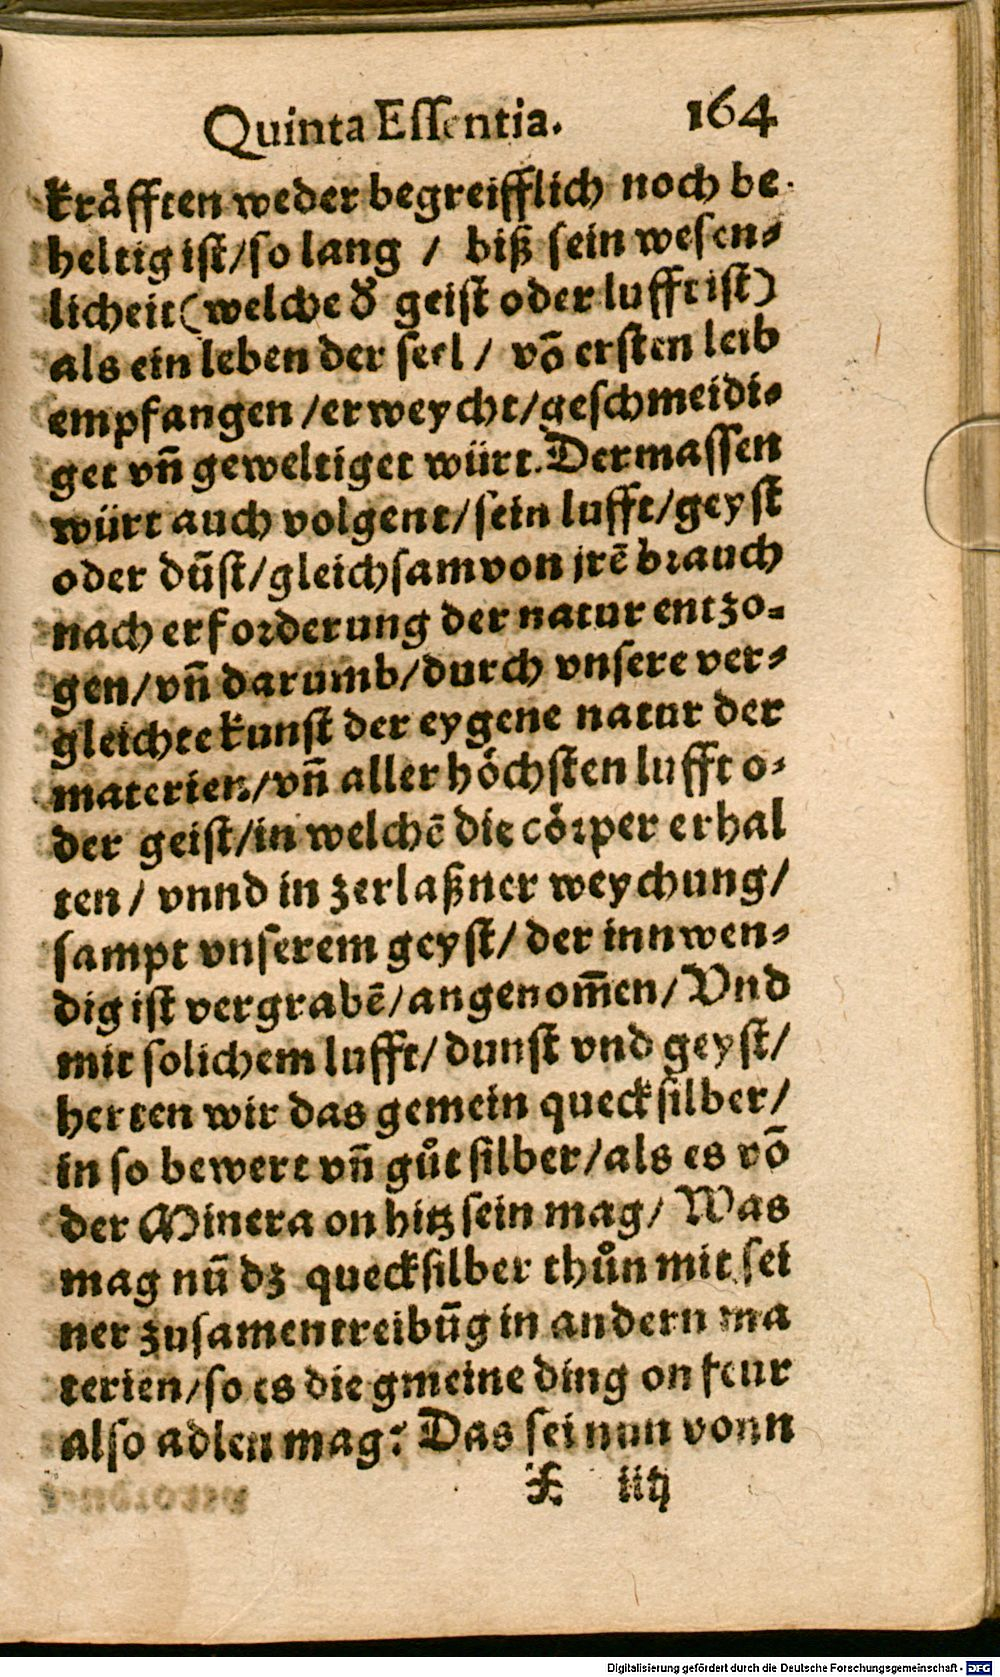 Quinta Essentia. 164
kräfften weder begreifflich noch be
heltig ist/so lang / biß sein wesen⸗
licheit (welche d̕ geist oder lufft ist)
als ein leben der seel / võ ersten leib
empfangen /erweycht/geschmeidi⸗
get vñ geweltiget würt. Dermassen
würt auch volgent/sein lufft/geyst
oder dũst/gleichsam von jrẽ brauch
nach erforderung der natur entzo⸗
gen/vñ darumb/durch vnsere ver⸗
gleichte kunst der eygene natur der
materien/vñ aller höchsten lufft o⸗
der geist/in welchẽ die cörper erhal
ten / vnnd in zerlaßner weychung/
sampt vnserem geyst/ der innwen⸗
dig ist vergrabẽ/angenom̃en/ Vnd
mit solichem lufft/ dunst vnd geyst/
herten wir das gemein quecksilber/
in so bewert vñ gůt silber/als es võ
der Minera on hitz sein mag/ Was
mag nũ dz quecksilber thůn mit sei
ner zusamentreibũg in andern ma
terien/so es die gmeine ding on feur
also adlen mag? Das sei nun vonn
X iiij
Digitalisierung gefördert durch die Deutsche Forschungsgemeinschaft - DFG